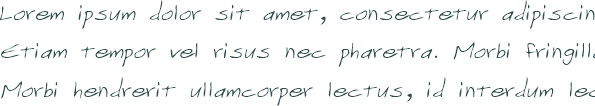 Lorem ipsum dolor sit amet, consectetur adipiscin
Etiam tempor vel risus nec pharetra. Morbi fringilla
Morbi hendrerit ullamcorper lectus, id interdum lec